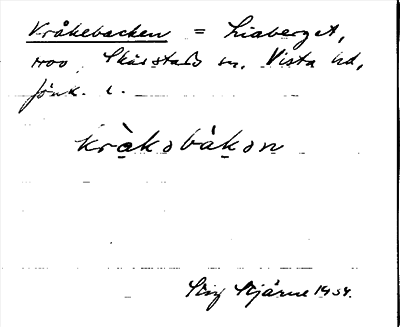 Kråkebacken = Liaberget,
Skärstads sn. Vista hd,
Jönk. l.
kràkəbàkən
Stig Stjärne 1954.